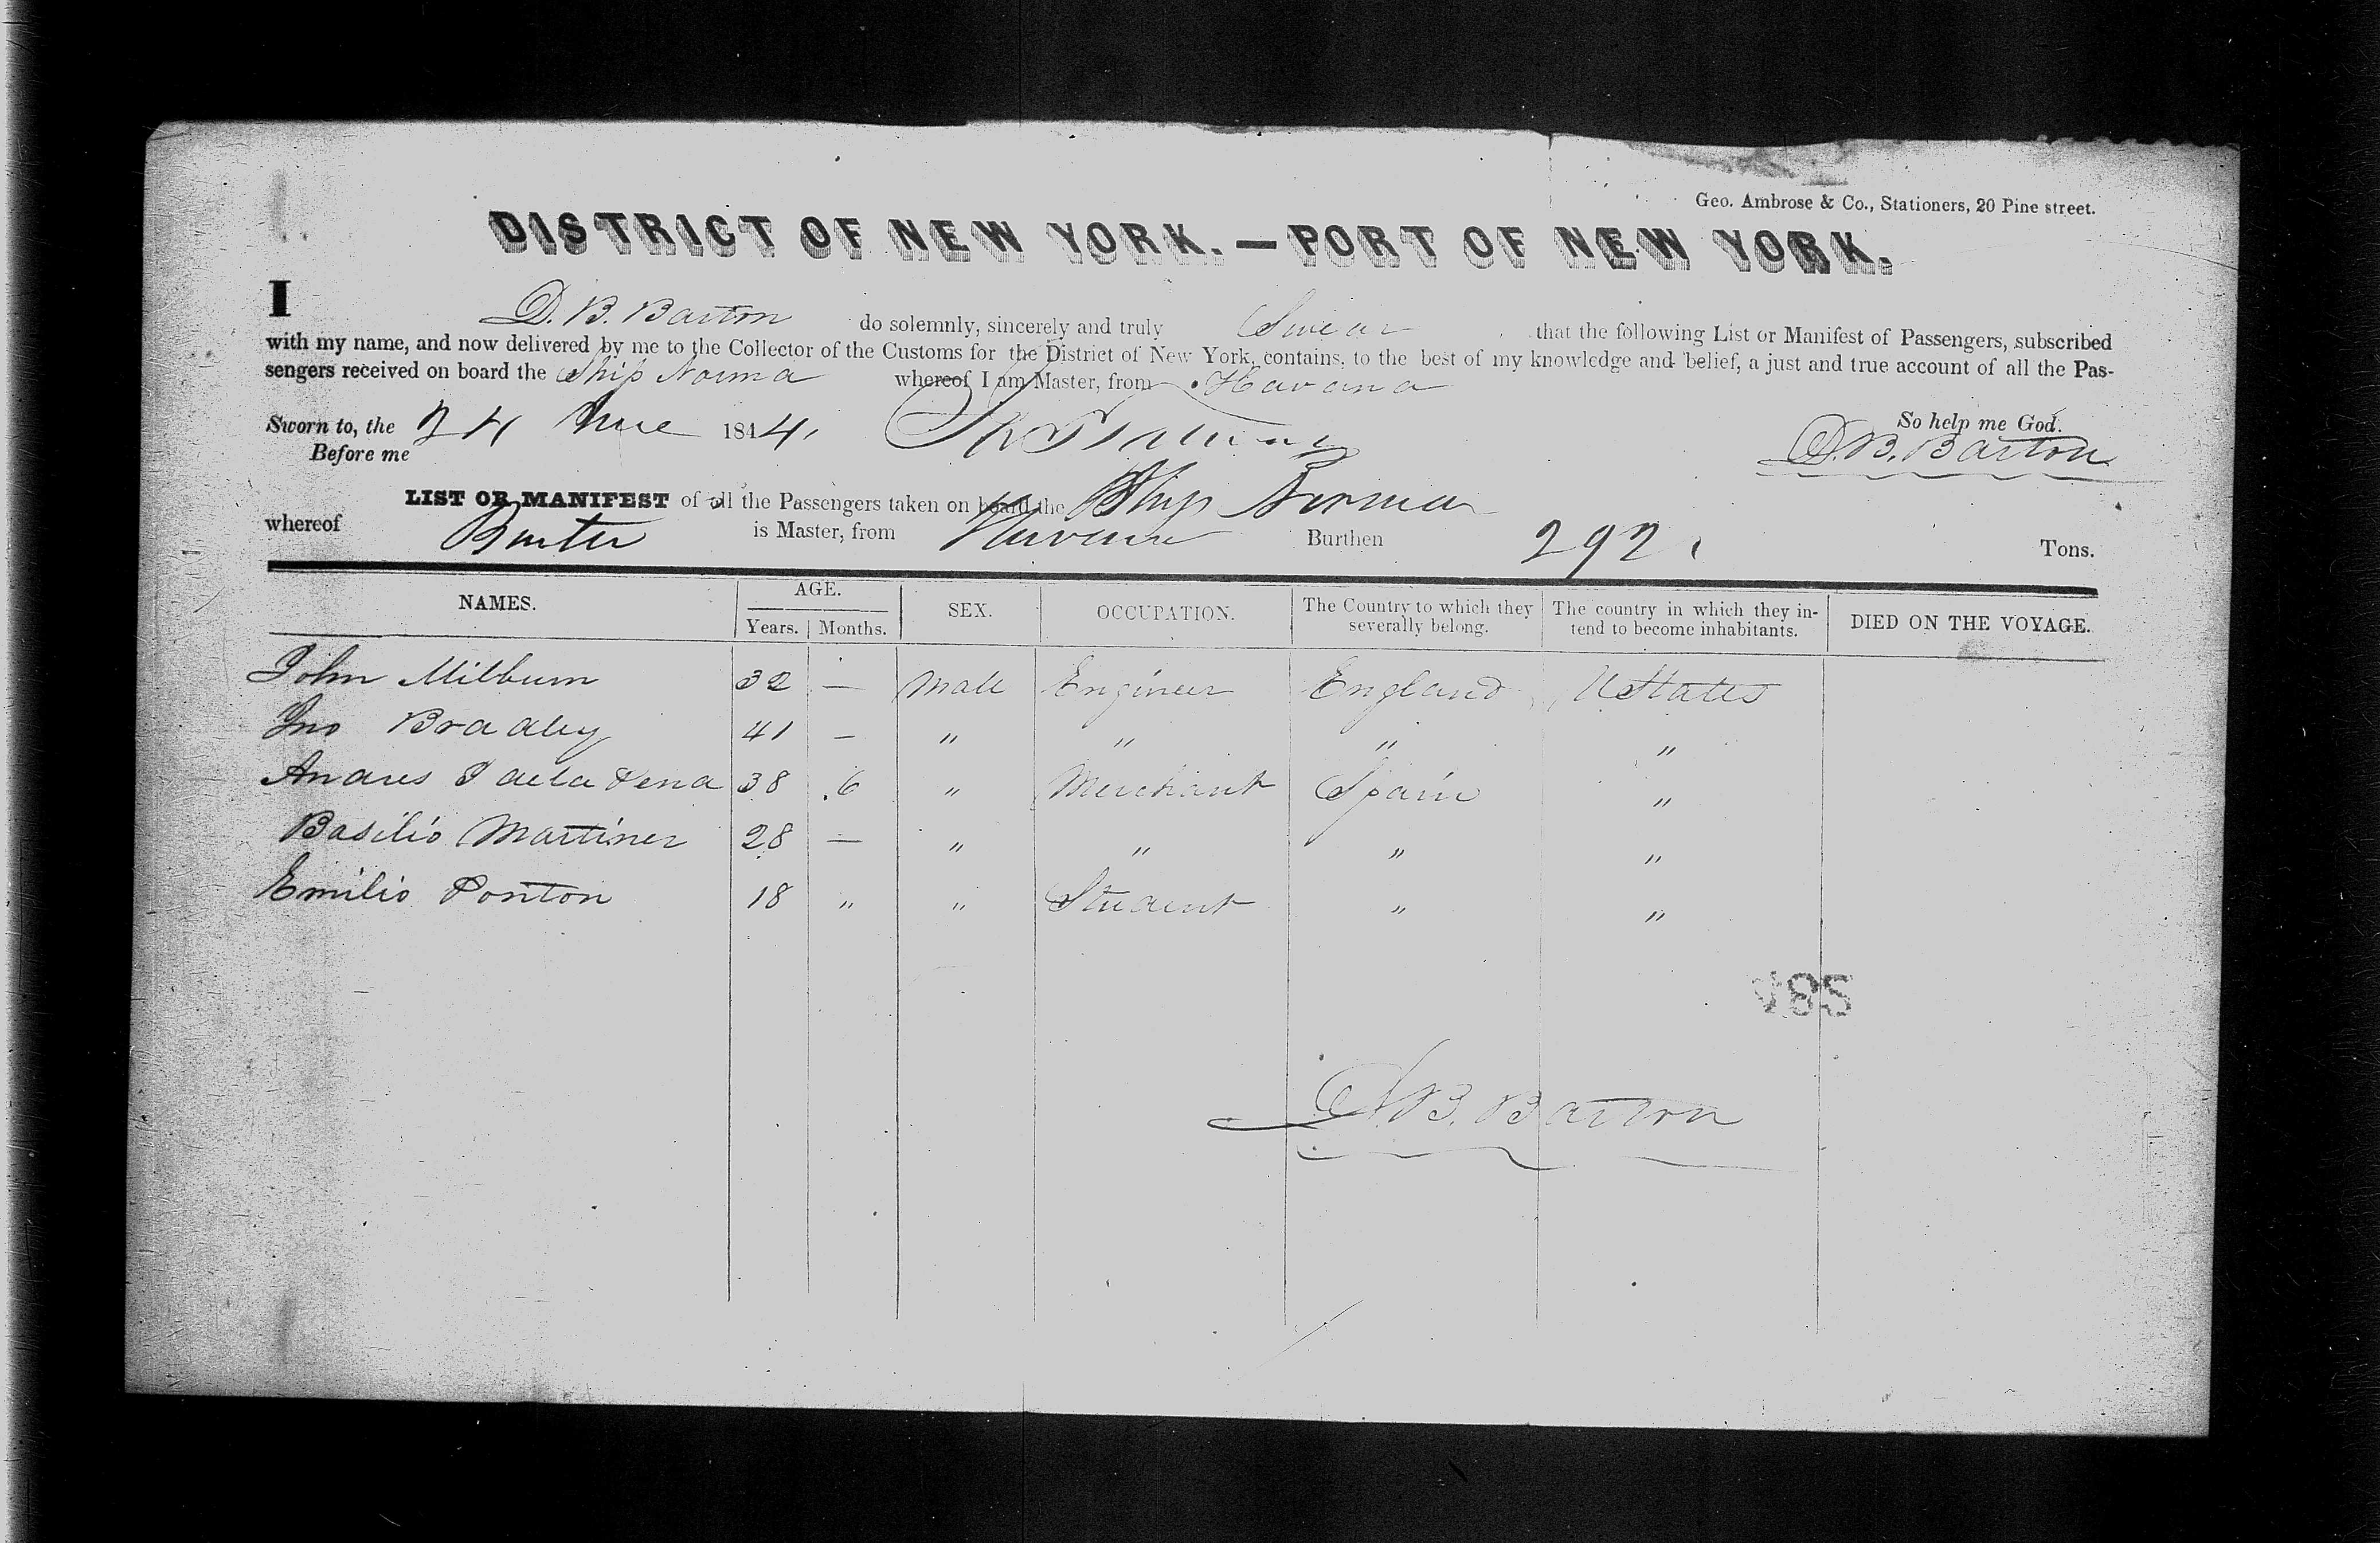 Geo. Ambrose & Co., Stationers, 20 Pine street.
DISTRICT OF NEW YORK.—PORT OF NEW YORK.
I D. B. Barton do solemnly, sincerely and truly Swear that the following List or Manifest of Passengers, subscribed
with my name, and now delivered by me to the Collector of the Customs for the District of New York, contains, to the best of my knowledge and belief, a just and true account of all the Pas-
sengers received on board the Ship Norma whereof I am Master, from Havana
So help me God.
Sworn to, the 24 June 1844,
Before me
D. B. Barton
LIST OR MANIFEST of all the Passengers taken on board the Ship Norma
whereof is Master, from Havana Burthen 292 Tons.
NAMES. AGE. SEX. OCCUPATION. The Country to which they severally belong. The country in which they in-tend to become inhabitants. DIED ON THE VOYAGE.
Years. Months.
John Milburn 32 — Male Engineer England U States
Jno Bradley 41 — " " " "
Andres P de la Pena 38 6 " Merchant Spain "
Basilio Martinez 28 — " " " "
Emilio Ponton 18 " " Student " "
D. B. Barton